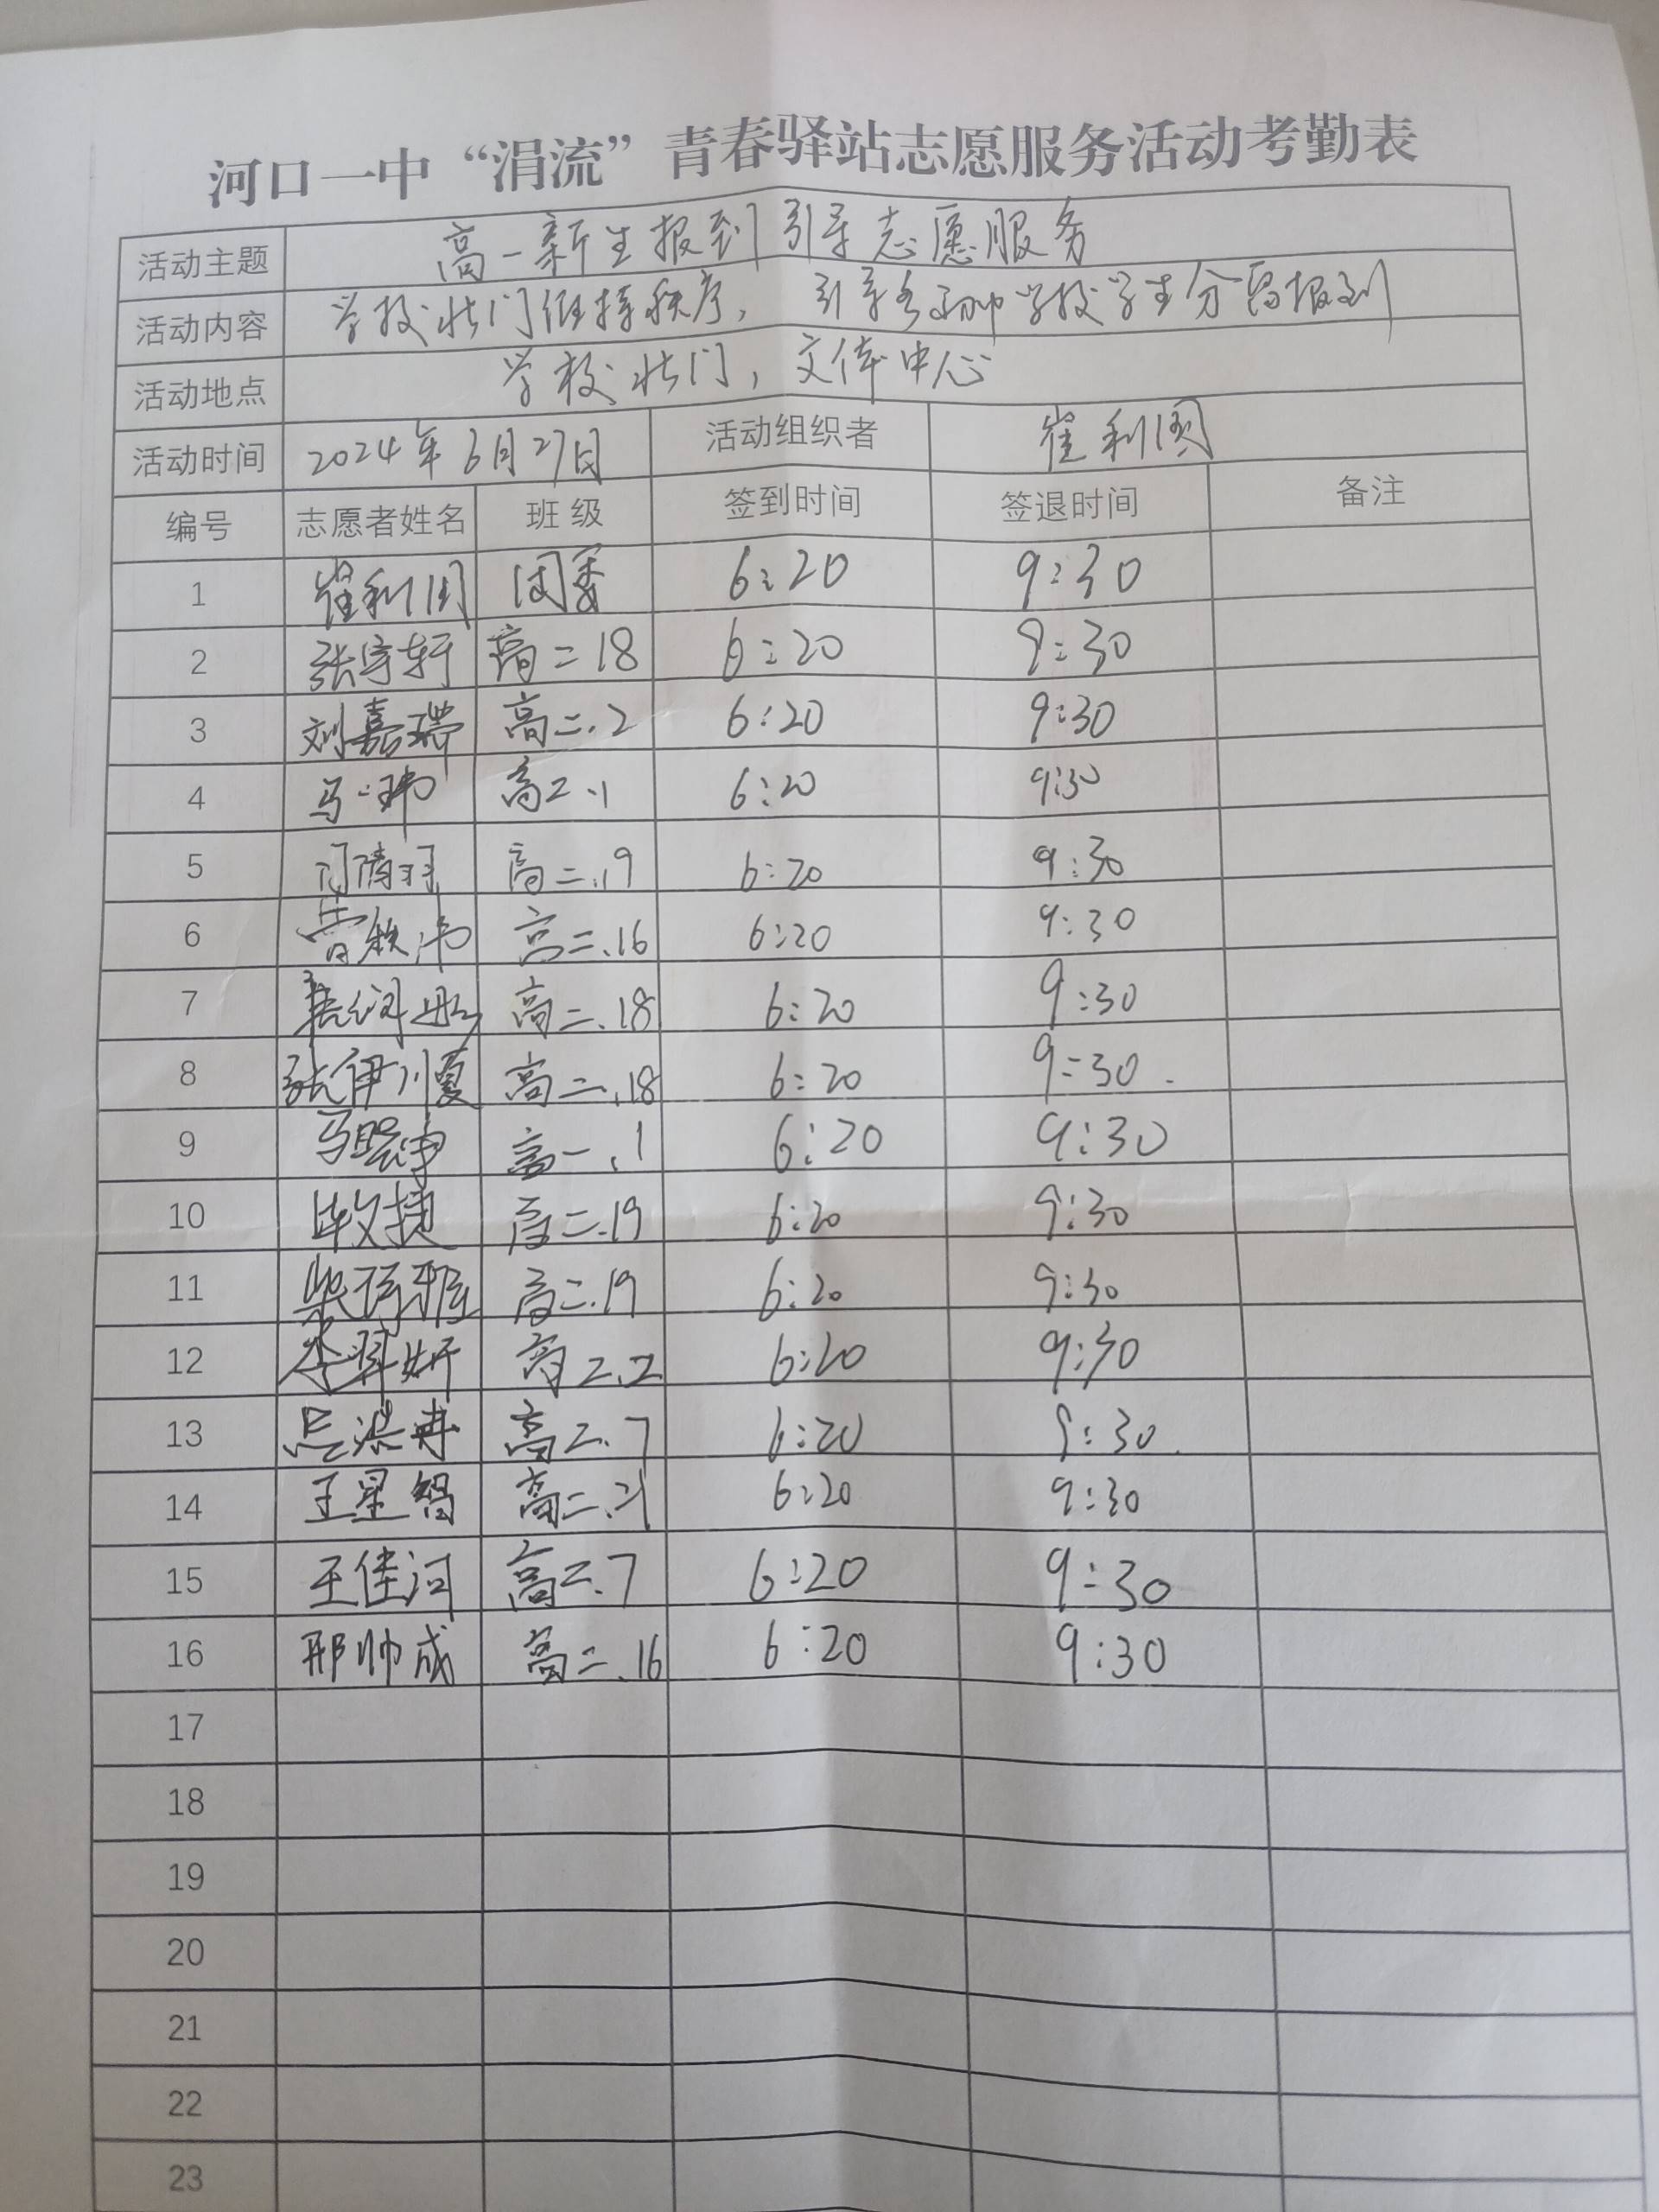 河口一中“涓流”青春驿站志愿服务活动考勤表
活动主题 高一新生报到引导志愿服务
活动内容 学校北门维持秩序, 引导各初中学校学生分宿报到
活动地点 学校北门, 文体中心
活动时间 2024年6月27日 活动组织者 崔利国
编号 志愿者姓名 班级 签到时间 签退时间 备注
1 崔利国 团委 6:20 9:30
2 张宇轩 高二18 6:20 9:30
3 刘嘉瑞 高二.2 6:20 9:30
4 马一玮 高二.1 6:20 9:30
5 高二.19 6:20 9:30
6 高二.16 6:20 9:30
7 高二.18 6:20 9:30
8 张伊川夏 高二.18 6:20 9:30
9 马 高一.1 6:20 9:30
10 毕文捷 高二.19 6:20 9:30
11 柴 雅 高二.19 6:20 9:30
12 李羿妍 高二.2 6:20 9:30
13 吴洪冉 高二.7 6:20 9:30
14 王星智 高二.21 6:20 9:30
15 王佳河 高二.7 6:20 9:30
16 邢帅成 高二.16 6:20 9:30
17
18
19
20
21
22
23